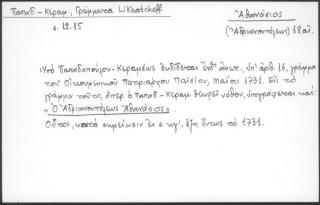 Παπαδ.- Κεραμ., Γράμματα Likhatcheff
σ. 12.15
Ἀθανάσιος
(Ἀδριανουπόλεως) 18 αἰ.
Ὑπὸ Παπαδοπούλου-Κεραμέως ἐκδίδεται ἔνθ' ἀνωτ., ὑπ' ἀρθ. 16, γράμμα
τοῦ Οἰκουμενικοῦ Πατριάρχου Παϊσίου, Μαΐου 1731. Εἰς τὸ
γράμμα τοῦτο, ὅπερ ὁ Παπαδ.-Κεραμ. θεωρεῖ νόθον, ὑπογράφεται καὶ:
«Ὁ Ἀδριανουπόλεως Ἀθανάσιος».
Οὗτος, κατὰ σημείωσιν ἐν σ. κγ', ἔζη ὄντως τὸ 1731.